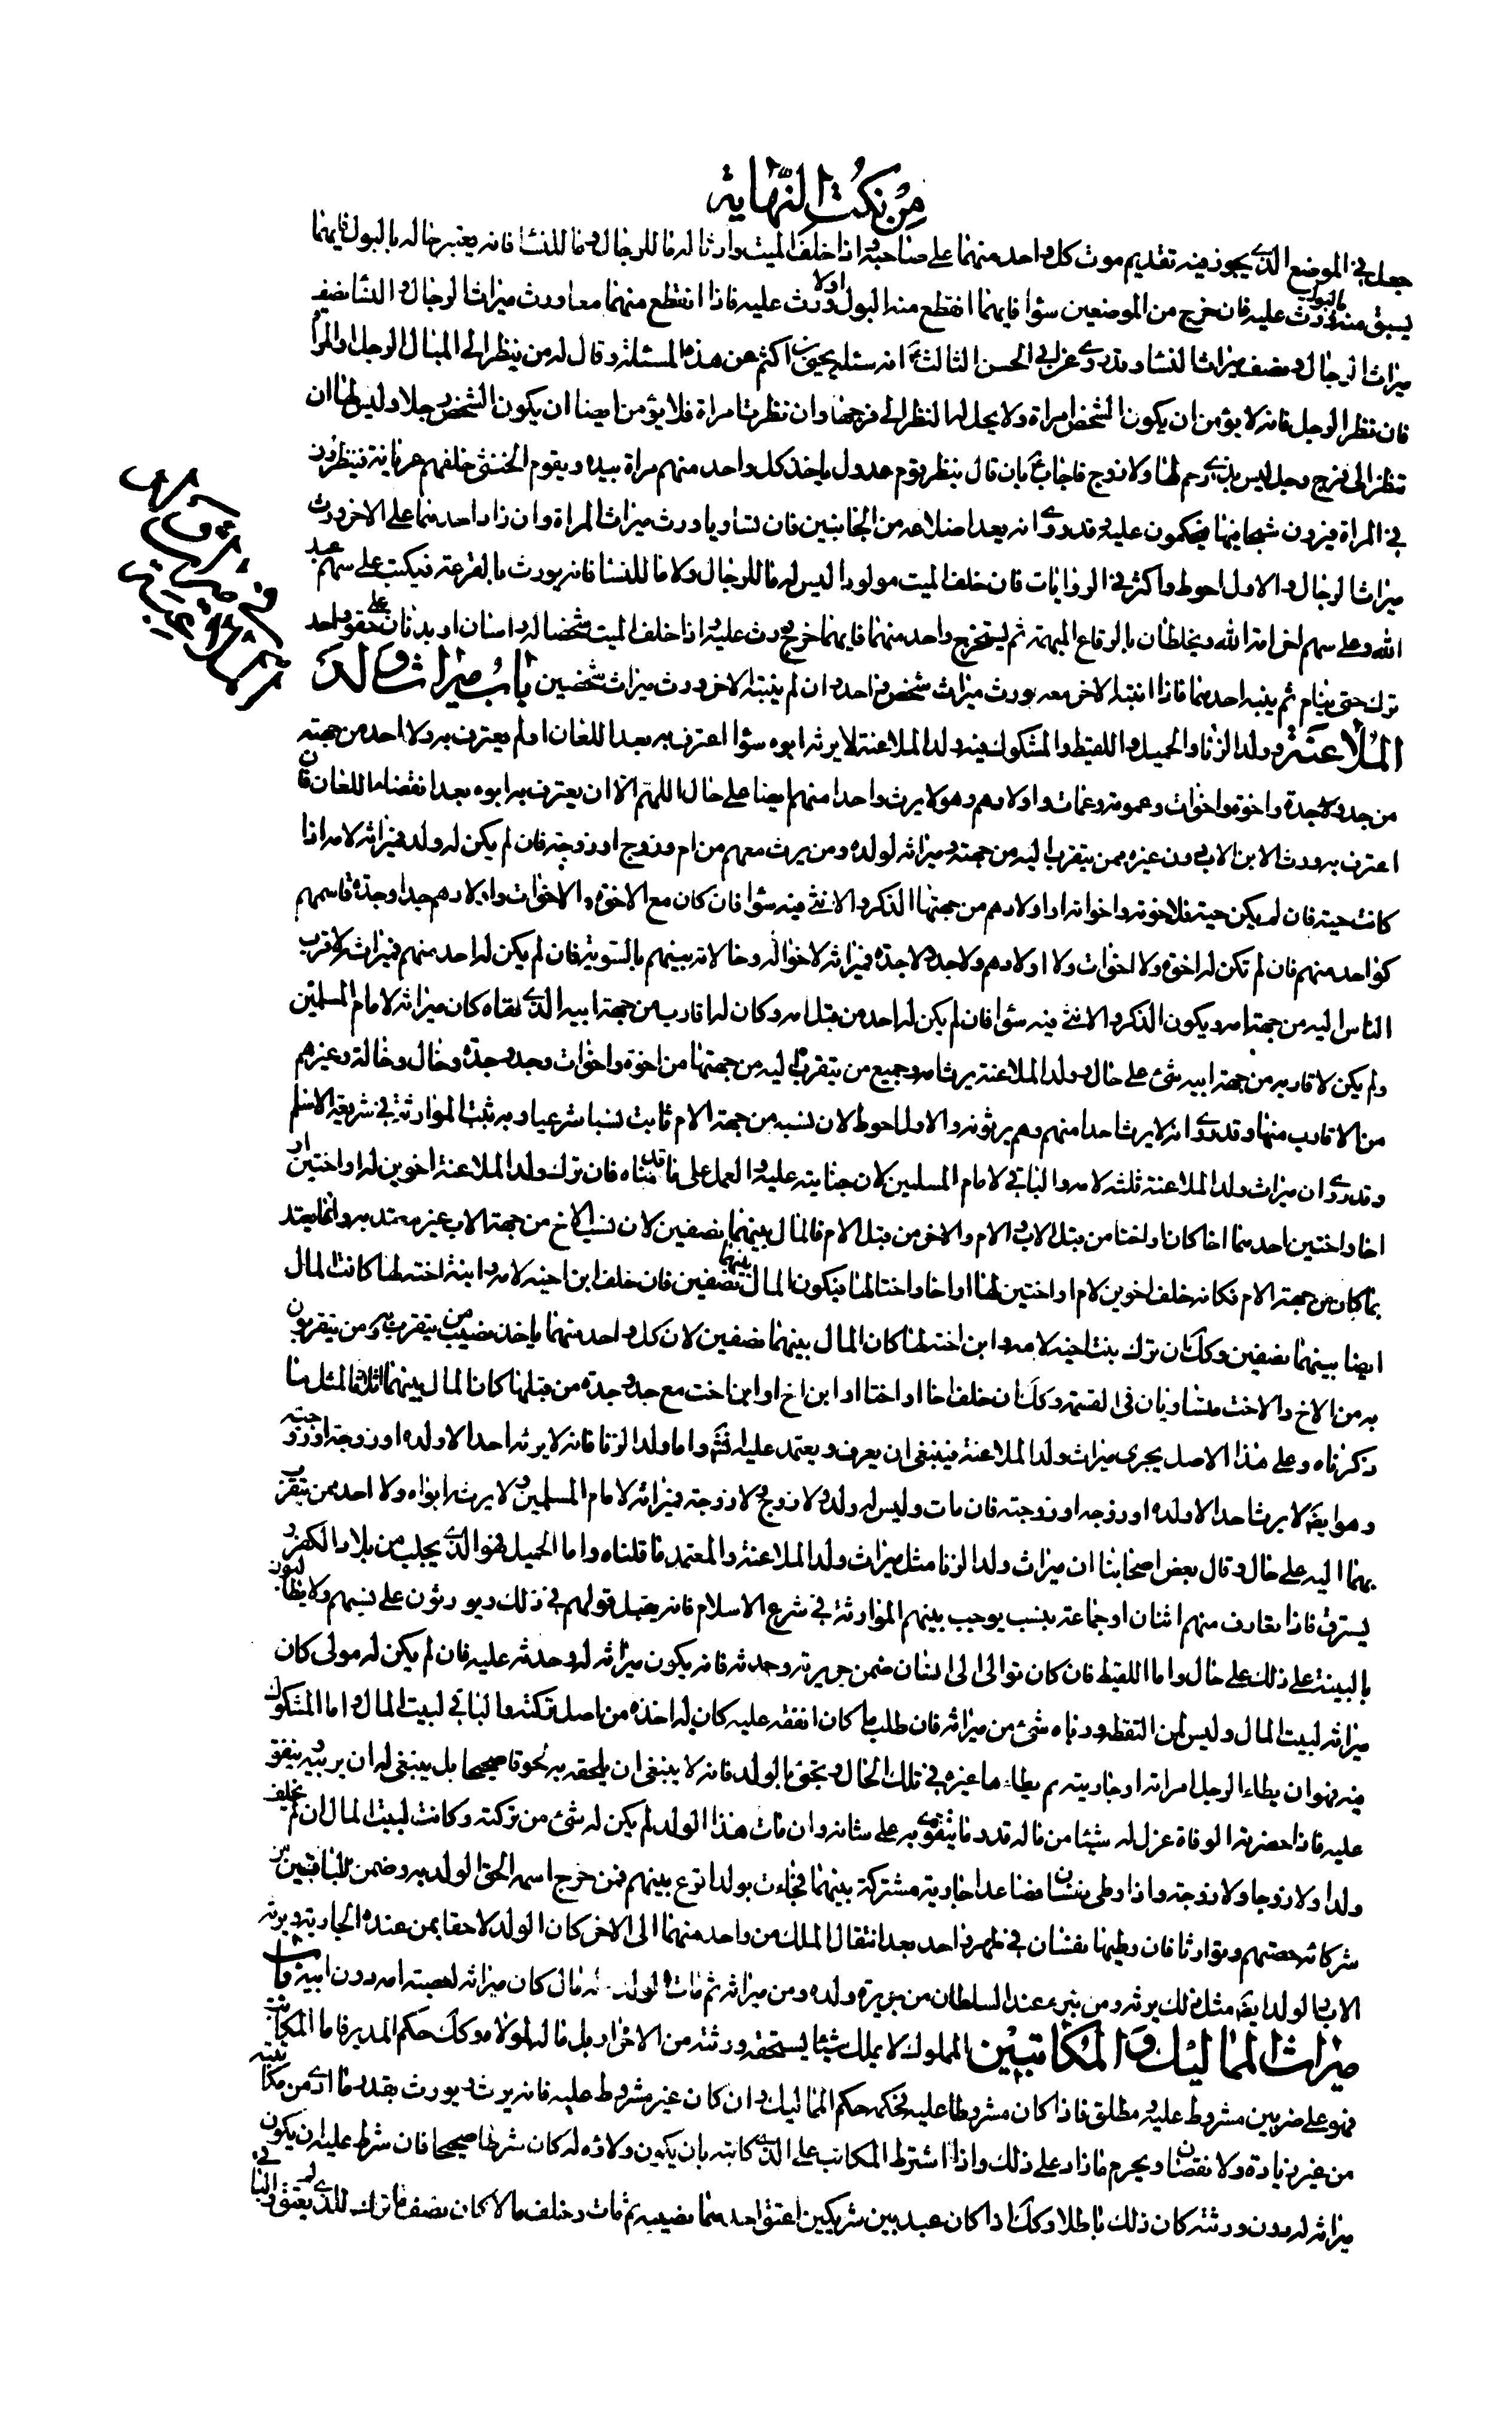 من نكت النهاية
جعل في الموضع الذي يجوز فيه تقديم موت كل واحد منهما على صاحبه واذا خلف الميت وارثا له ما للرجال وما للنسا فانه يعتبر حاله بالبول فايهما
يسبق منه البول ورث عليه فان خرج من الموضعين سوا فايهما انقطع منه البول اولا ورث عليه فاذا انقطع منهما معا ورث ميراث الرجال والنسا نصف
ميراث الرجال ونصف ميراث النسا وقد روي عن ابي الحسن الثالث ع انه سئله يحيى بن اكثم عن هذه المسئلة وقال له من ينظر الى المبال الرجل او المراة
فان نظر الرجل فانه لا يؤمن ان يكون الشخص امراة ولا يحل له النظر الى فرجها وان نظرت امراة فلا يؤمن ايضا ان يكون الشخص رجلا وليس لها ان
تنظر الى فرج رجل ليس بذي رحم لها ولا زوج فاجاب ع بان قال ينظر قوم عدول ياخذ كل واحد منهم مراة بيده ويقوم الخنثى خلفهم عريانة فينظرون
في المراة فيرون شبحا فيها فيحكمون عليه وقد روي انه يعد اضلاعه من الجانبين فان تساويا ورث ميراث المراة وان زاد احدهما على الاخر ورث
ميراث الرجال والاول احوط واكثر في الروايات فان خلف الميت مولودا ليس له ما للرجال ولا ما للنسا فانه يورث بالقرعة فيكتب على سهم عبد
الله وعلى سهم اخر امة الله ويخلطان بالرقاع المبهمة ثم يستخرج واحد منهما فايهما خرج ورث عليه واذا خلف الميت شخصا له راسان او بدنان على حقو واحد
ترك حتى ينام ثم ينبه احدهما فاذا انتبه الاخر معه يورث ميراث شخص واحد وان لم ينتبه الاخر ورث ميراث شخصين باب ميراث ولد
الملاعنة وولد الزنا والحميل واللقيط والمشكوك فيه ولد الملاعنة لا يرثه ابوه سوا اعترف به بعد اللعان او لم يعترف به ولا احد من جهته
من جد وجدة واخوة واخوات وعمومة وعمات واولادهم وهو لا يرث واحدا منهم ايضا على حال اللهم الا ان يعترف به ابوه بعد انقضاء اللعان فان
اعترف به ورث الابن الاب دون غيره ممن يتقرب اليه من جهته وميراثه لولده ومن يرث معهم من ام وزوج او زوجة فان لم يكن له ولد فميراثه لامه اذا
كانت حية فان لم يكن حية فلاخوته واخواته او اولادهم من جهتها الذكر والانثى فيه سوا فان كان مع الاخوة والاخوات واولادهم جدا وجدة قاسمهم
كواحد منهم فان لم تكن له اخوة ولا اخوات ولا اولادهم ولا جد ولا جدة فميراثه لاخواله وخالاته بينهم بالسوية فان لم يكن له احد منهم فميراثه لاقرب
الناس اليه من جهة امه ويكون الذكر والانثى فيه سوا فان لم يكن له احد من قبل امه وكان له اقارب من جهة ابيه الذي نفاه كان ميراثه لامام المسلمين
ولم يكن لاقاربه من جهة ابيه شئ على حال وولد الملاعنة يرث امه وجميع من يتقرب اليه من جهتها من اخوة واخوات وجد وجدة وخال وخالة وغيرهم
من الاقارب منها وقد روي انه لا يرث احدا منهم وهم يرثونه والاول احوط لان نسبه من جهة الام ثابت نسبا شرعيا وبه ثبت الموارثة في شريعة الاسلم
وقد روي ان ميراث ولد الملاعنة ثلثه لامه والباقي لامام المسلمين لان جنايته عليه والعمل على ما قدمناه فان ترك ولد الملاعنة اخوين له او اختين او
اخا واختين احدهما اخا كان او اختا من قبل الاب والام والاخر من قبل الام فالمال بينهما نصفين لان نسب الاخ من جهة الاب غير معتد به وانما يعتد
بما كان من جهة الام فكانه خلف اخوين لام او اختين لها او اخا واختا لها فيكون المال بينهما نصفين فان خلف ابن اخيه لامه وابنة اخته لها كانت المال
ايضا بينهما نصفين وكك ان ترك بنت اخيه لامه وابن اخته لها كان المال بينهما نصفين لان كل واحد منهما ياخذ نصيب من يتقرب به ومن يتقربون
به من الاخ والاخت متساويان في القسمة وكك ان خلف اخا او اختا او ابن اخ او ابن اخت مع جد وجدة من قبلها كان المال بينهما اثلاثا لمثل ما
ذكرناه وعلى هذا الاصل يجرى ميراث ولد الملاعنة فينبغي ان يعرف ويعتمد عليه واما ولد الزنا فانه لا يرثه احد الا ولده او زوجه او زوجته
وهو ايض لا يرث احدا الا ولده او زوجه او زوجته فان مات وليس له ولد ولا زوج ولا زوجة فميراثه لامام المسلمين ولا يرث ابواه ولا احد ممن يتقرب
بهما اليه على حال وقال بعض اصحابنا ان ميراث ولد الزنا مثل ميراث ولد الملاعنة والمعتمد ما قلناه واما الحميل فهو الذي يجلب من بلاد الكفر و
يسترق فاذا تعارف منهم اثنان او جماعة بنسب يوجب بينهم الموارثة في شرع الاسلام فانه يقبل قولهم في ذلك ويورثون على نسبهم ولا يطالبون
بالبينة على ذلك على حال واما اللقيط فان كان توالى الى انسان ضمن جريرته وحدثه فانه يكون ميراثه له وحدثه عليه فان لم يكن له مولى كان
ميراثه لبيت المال وليس لمن التقطه ورباه شئ من ميراثه فان طلب ما كان انفقه عليه كان له اخذه من اصل تركته والباقي لبيت المال واما المشكوك
فيه فهو ان يطاء الرجل امراته او جاريته ثم يطاءها غيره في تلك الحال وتجئ بالولد فانه لا ينبغي ان يلحقه به لحوقا صحيحا بل ينبغي له ان يربيه وينفق
عليه فاذا حضرته الوفاة عزل له شيئا من ماله قدر ما يتقوى به على شانه وان مات هذا الولد لم يكن له شئ من تركته وكانت لبيت المال ان لم يخلف
ولدا ولا زوجا ولا زوجة واذا وطى نفسان فصاعدا جارية مشتركة بينهما فجاءت بولد اقرع بينهم فمن خرج اسمه الحق الولد به وضمن للباقين من
شركائه حصتهم وتوارثا فان وطيها نفسان في طهر واحد بعد انتقال الملك من واحد منهما الى الاخر كان الولد لاحقا بمن عنده الجارية ويرثه
الاب والولد ايض مثل ذلك يرثه ومن تبرء عند السلطان من جريرة ولده ومن ميراثه ثم مات الولد وله مال كان ميراثه لعصبة امه دون ابيه باب
ميراث المماليك والمكاتبين المملوك لا يملك شيئا يستحقه ورثته من الاحرار بل ماله لمولاه وكك حكم المدبر فاما المكاتب
فهو على ضربين مشروط عليه ومطلق فاذا كان مشروطا عليه فحكمه حكم المماليك وان كان غير مشروط عليه فانه يرث ويورث بقدر ما ادى من مكاتبته
من غير زيادة ولا نقصان ويحرم ما زاد على ذلك واذا اشترط المكاتب على الذي كاتبه بان يكون ولاؤه له كان شرطا صحيحا فان شرط عليه ان يكون
ميراثه له دون ورثته كان ذلك باطلا وكك اذا كان عبد بين شريكين اعتق احدهما نصيبه ثم مات وخلف مالا كان نصف ما ترك للذي لم يعتق والباقي